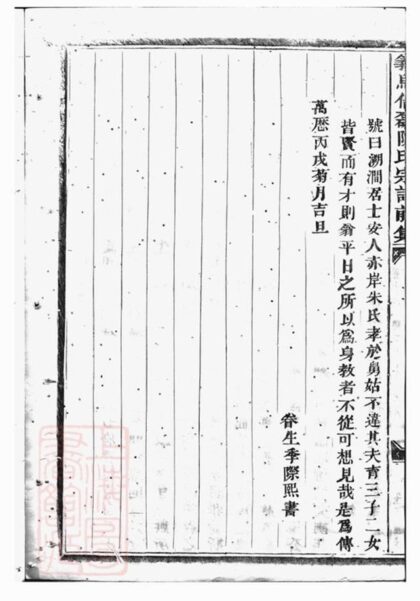 陳氏宗譜前集
號曰澗居士安人赤岸朱氏孝於舅姑不違其夫育三子二女
皆賢而有才則翁平日之所以爲身教者不從可想見哉是爲傳
萬歷丙戌菊月吉旦
眷生季際熙書